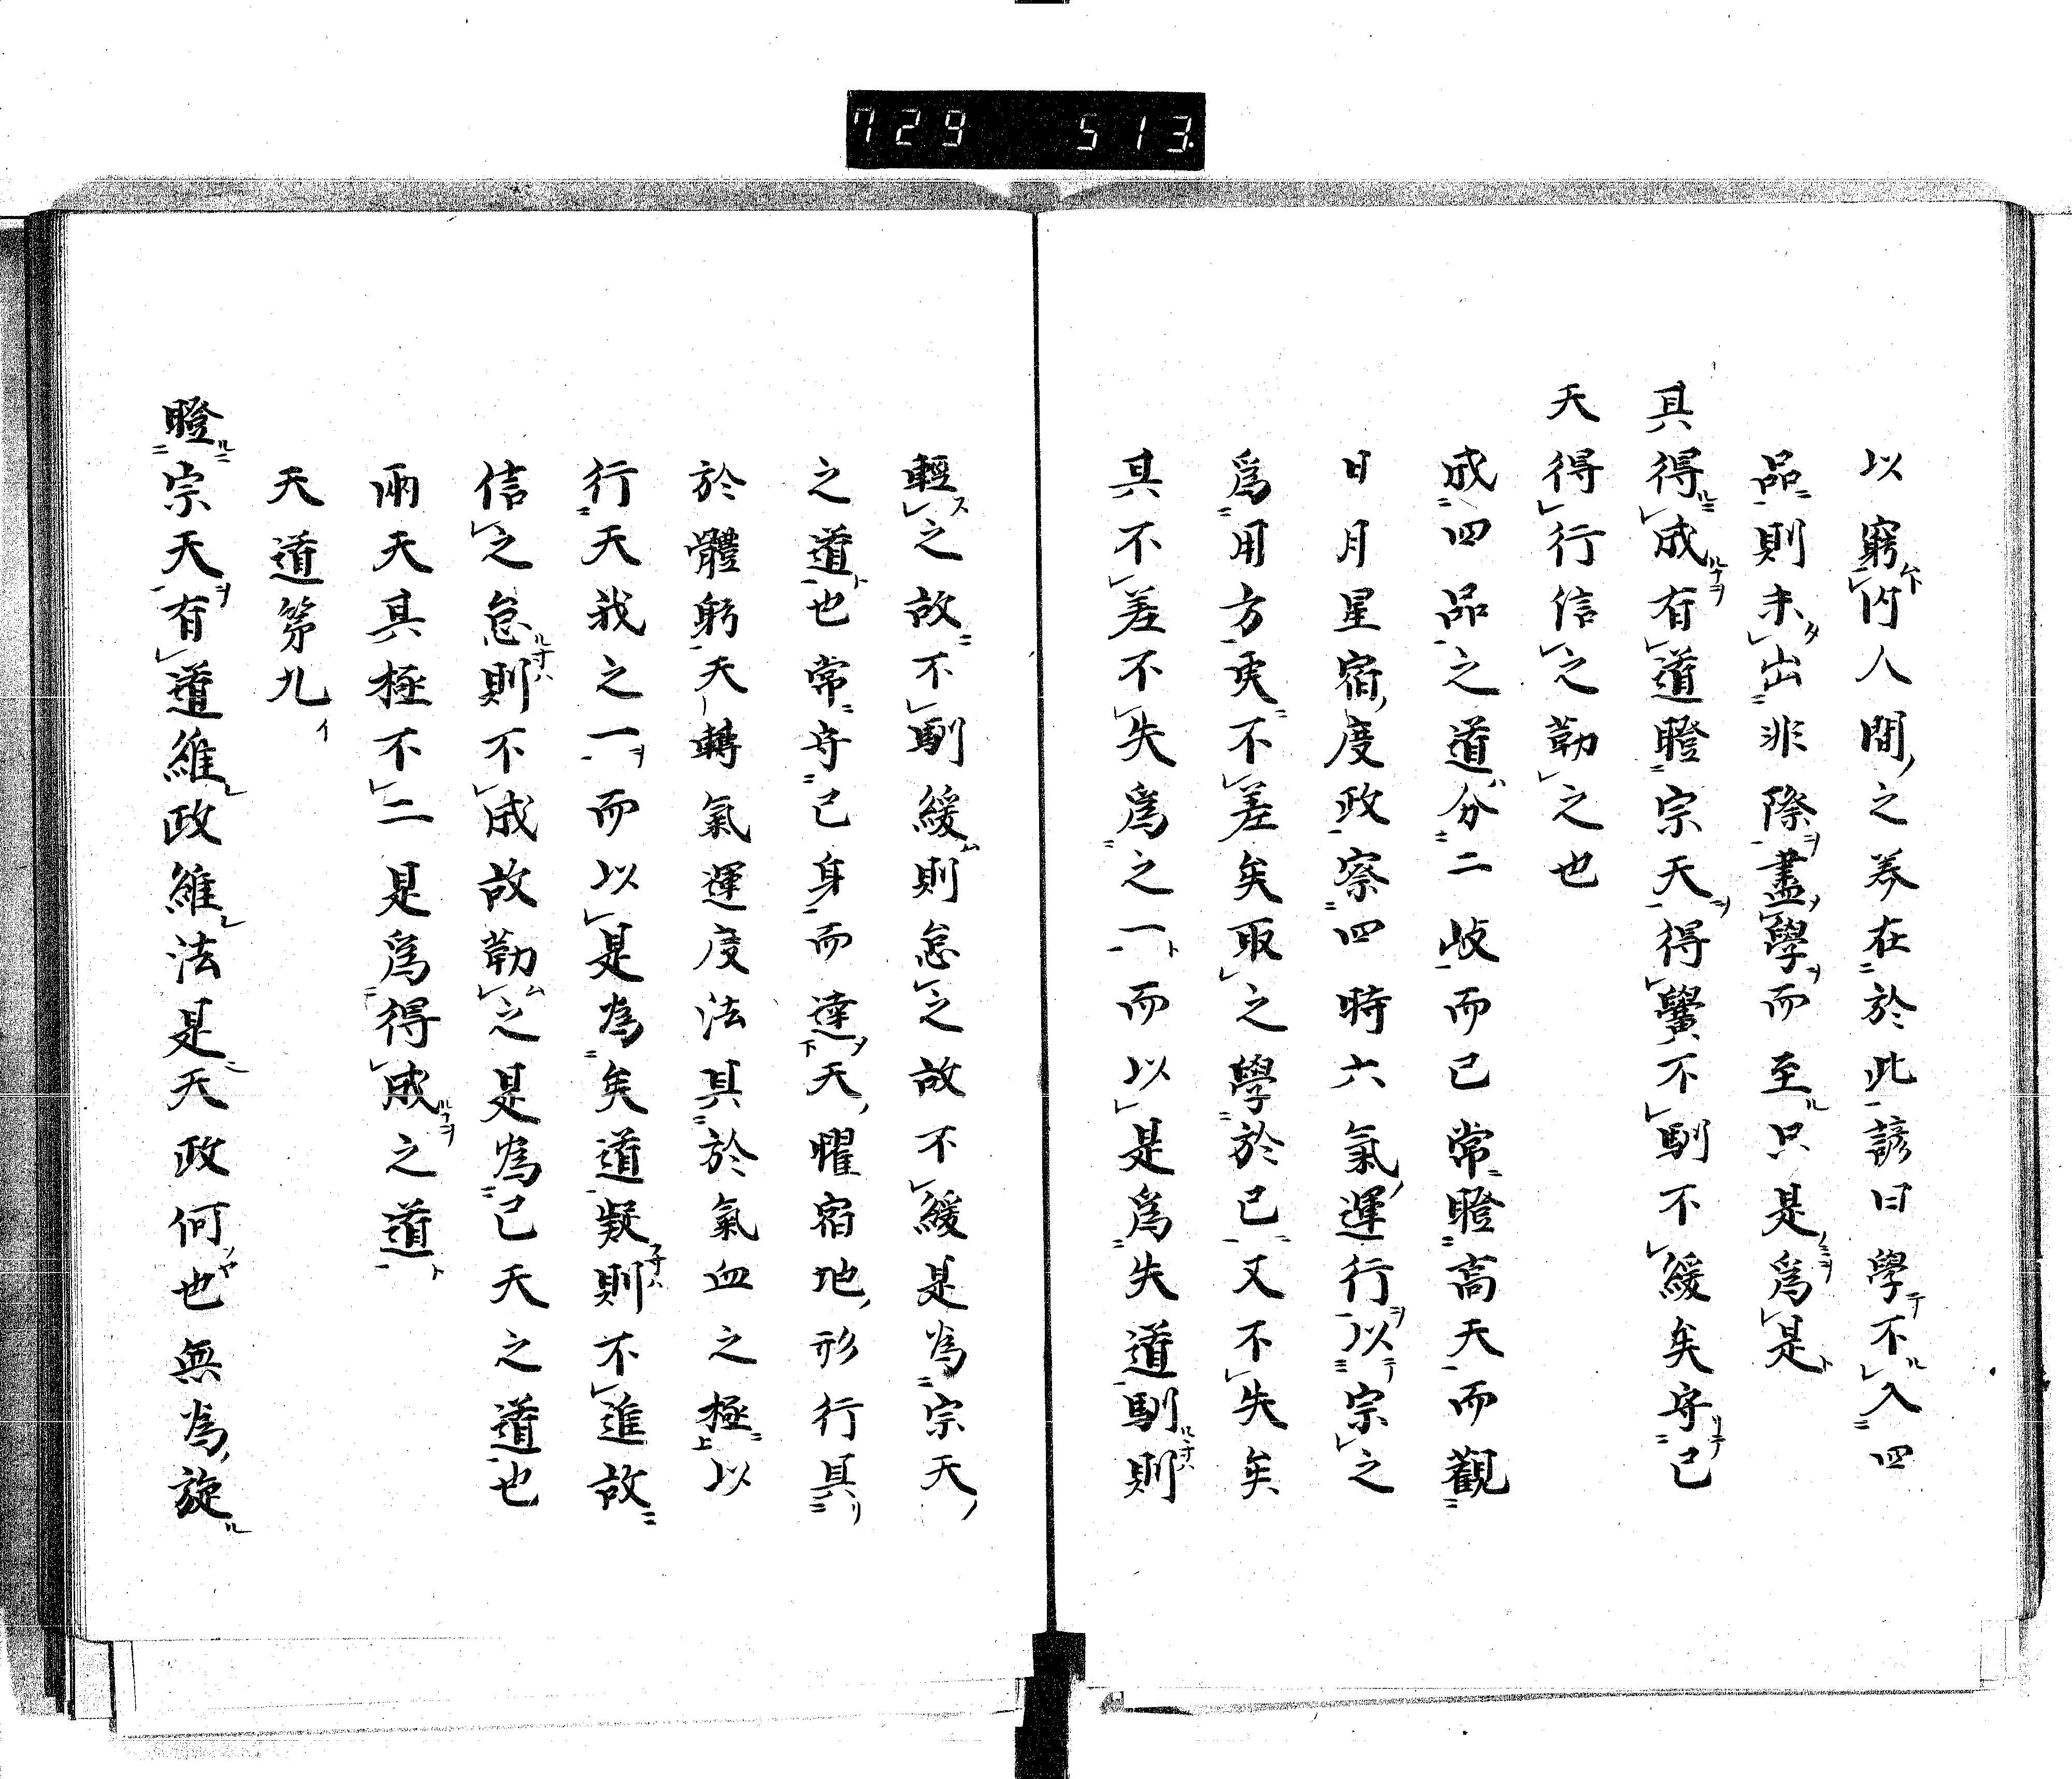 729 513.
以窮内人間之養在於此諺曰學不入四
品則未出非際盡學而至只是爲是
其得成有道瞪宗天得黌不馴不緩矣守己
天得行信之勒之也
成四品之道分二岐而已常瞪高天而觀
日月星宿度政察四時六氣運行以宗之
爲用方更不差矣取之學於己又不失矣
其不差不失爲之一而以是爲失道馴則
輕之故不馴緩則怠之故不緩是為宗天
之道也常守己身而達天曜宿地形行具
於體躬天轉氣運度法具於氣血之極以
行天我之一而以是為矣道疑則不進故
信之怠則不成故勒之是為己天之道也
兩天其極不二是爲得成之道
天道第九
瞪宗天有道維政維法是天政何也無為旋